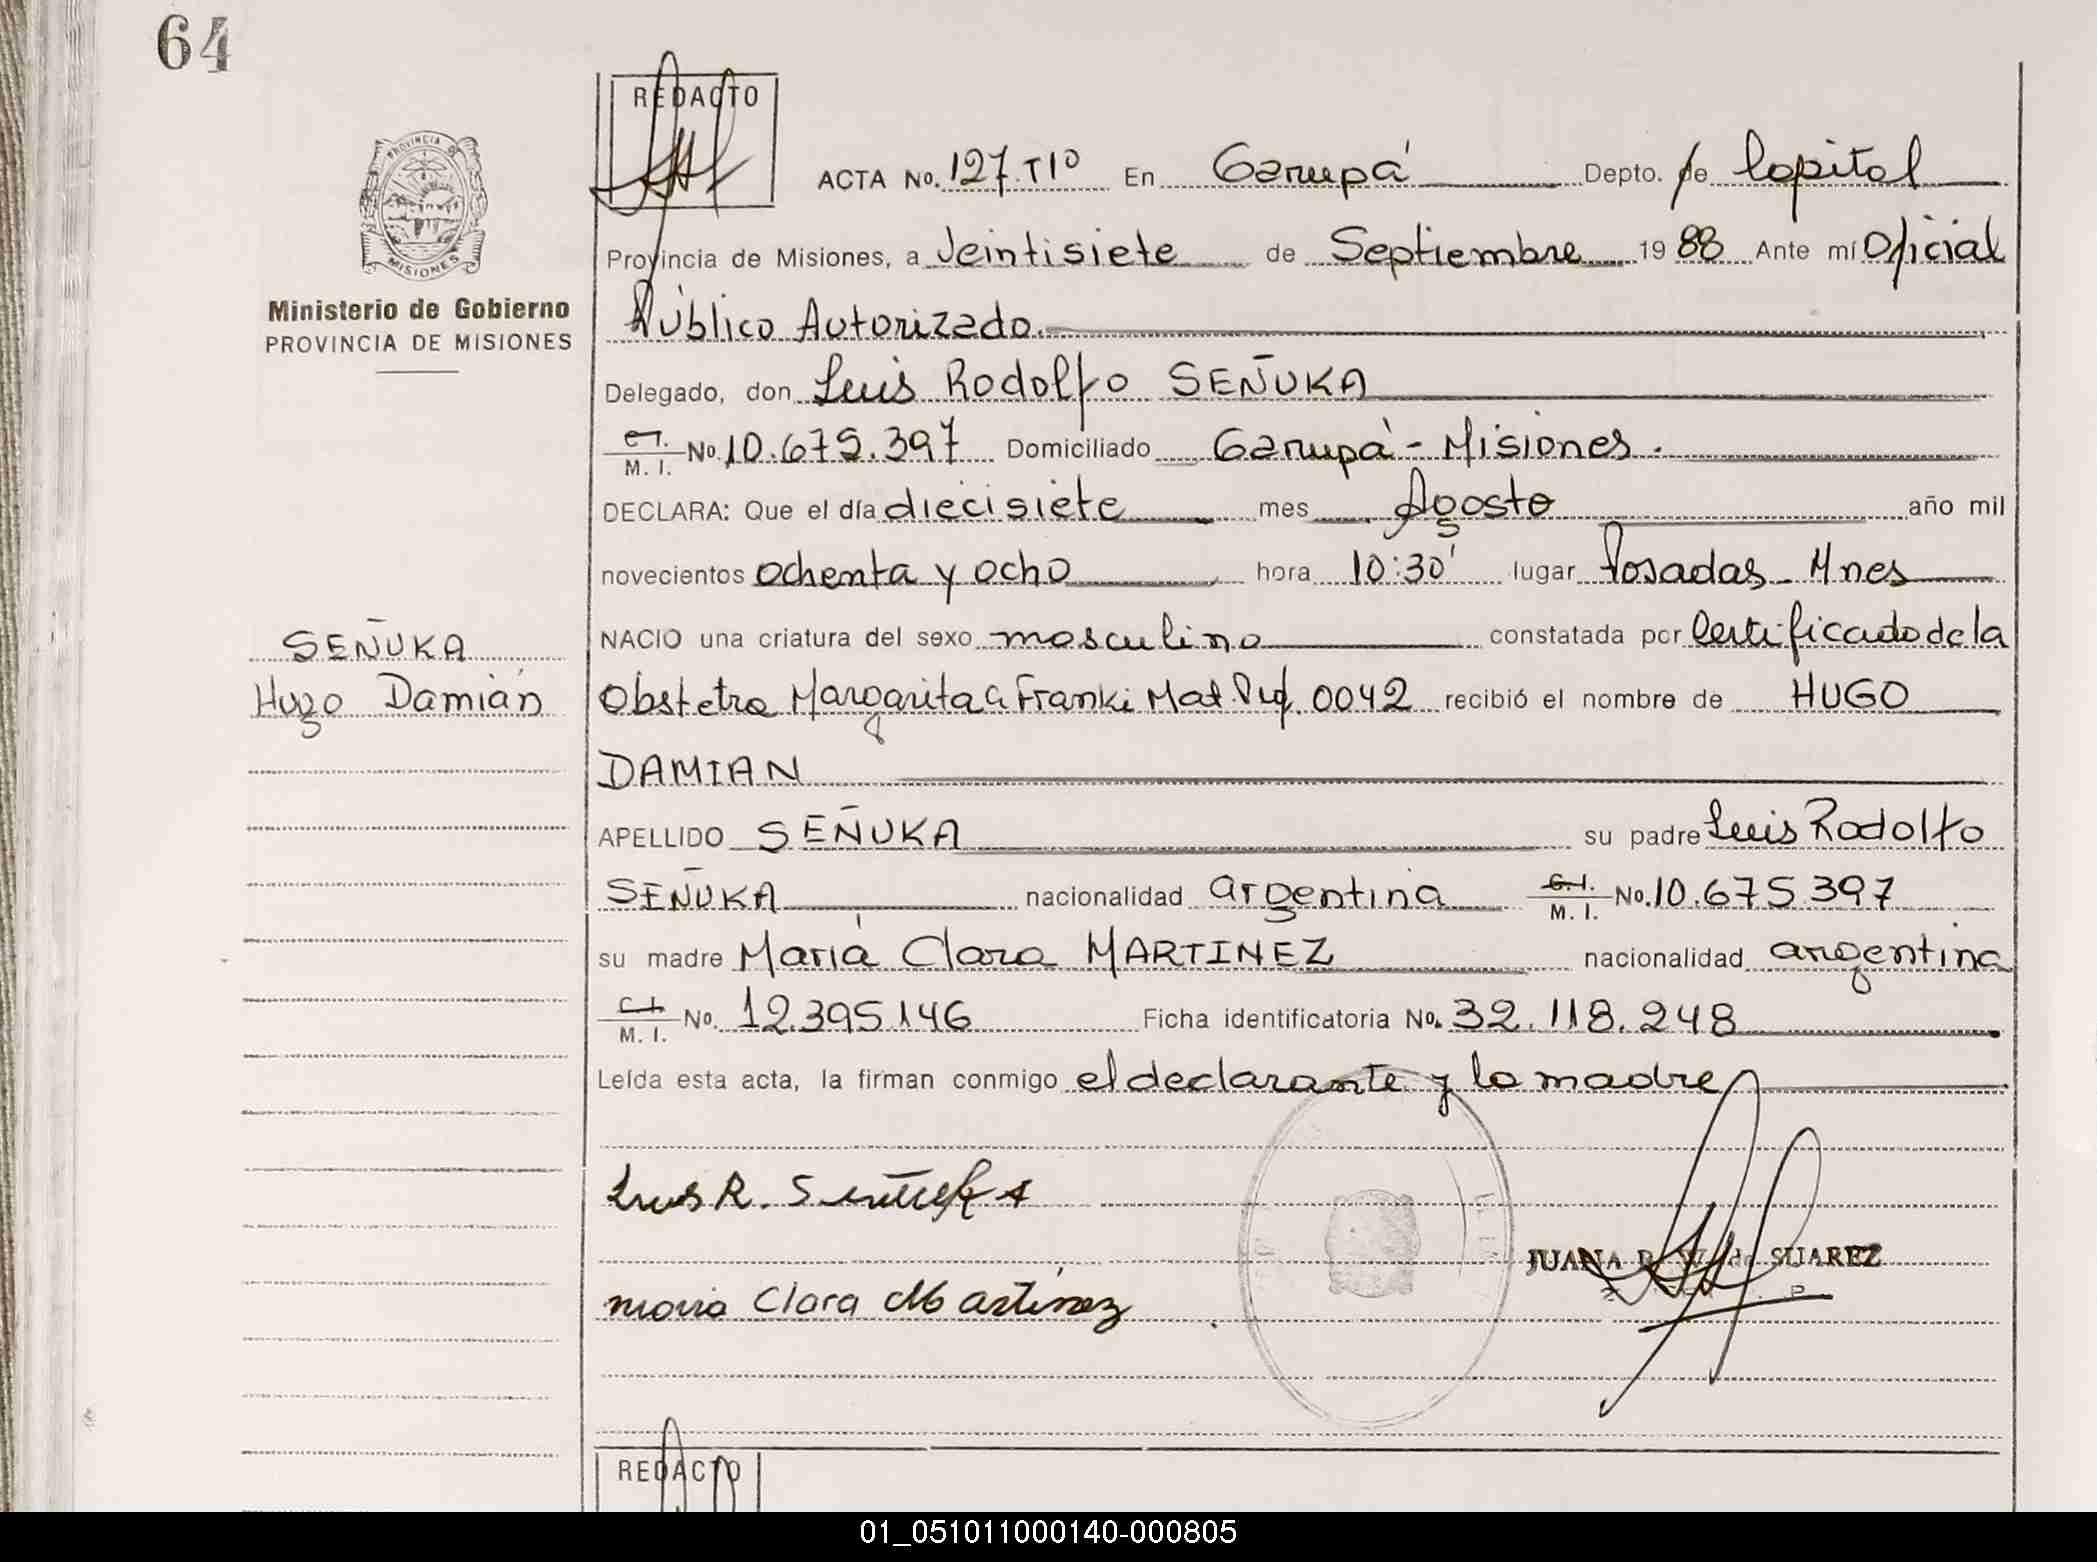 64
REDACTO
ACTA No. 127.T1º En Garupá Depto. de Capital
Provincia de Misiones, a Veintisiete de Septiembre 1988 Ante mí Oficial
Público Autorizado.
PROVINCIA DE
MISIONES
Ministerio de Gobierno
PROVINCIA DE MISIONES
Delegado, don Luis Rodolfo SEÑUKA
C.I.
M. I. No. 10.675.397 Domiciliado Garupá - Misiones.
DECLARA: Que el día diecisiete mes Agosto año mil
novecientos ochenta y ocho hora 10:30' lugar Posadas - Mnes
SEÑUKA
Hugo Damián
NACIO una criatura del sexo masculino constatada por Certificado de la
Obstetra Margarita G. Franki Mat. 0042 recibió el nombre de HUGO
DAMIAN
APELLIDO SEÑUKA su padre Luis Rodolfo
SEÑUKA nacionalidad argentina C.I.
M. I. No. 10.675.397
su madre María Clara MARTINEZ nacionalidad argentina
C.I.
M. I. No. 12.395.146 Ficha identificatoria No. 32.118.248
Leída esta acta, la firman conmigo el declarante y la madre
Luis R. Señuka
JUANA de SUAREZ
Maria Clara Martinez
REDACTO
01_051011000140-000805